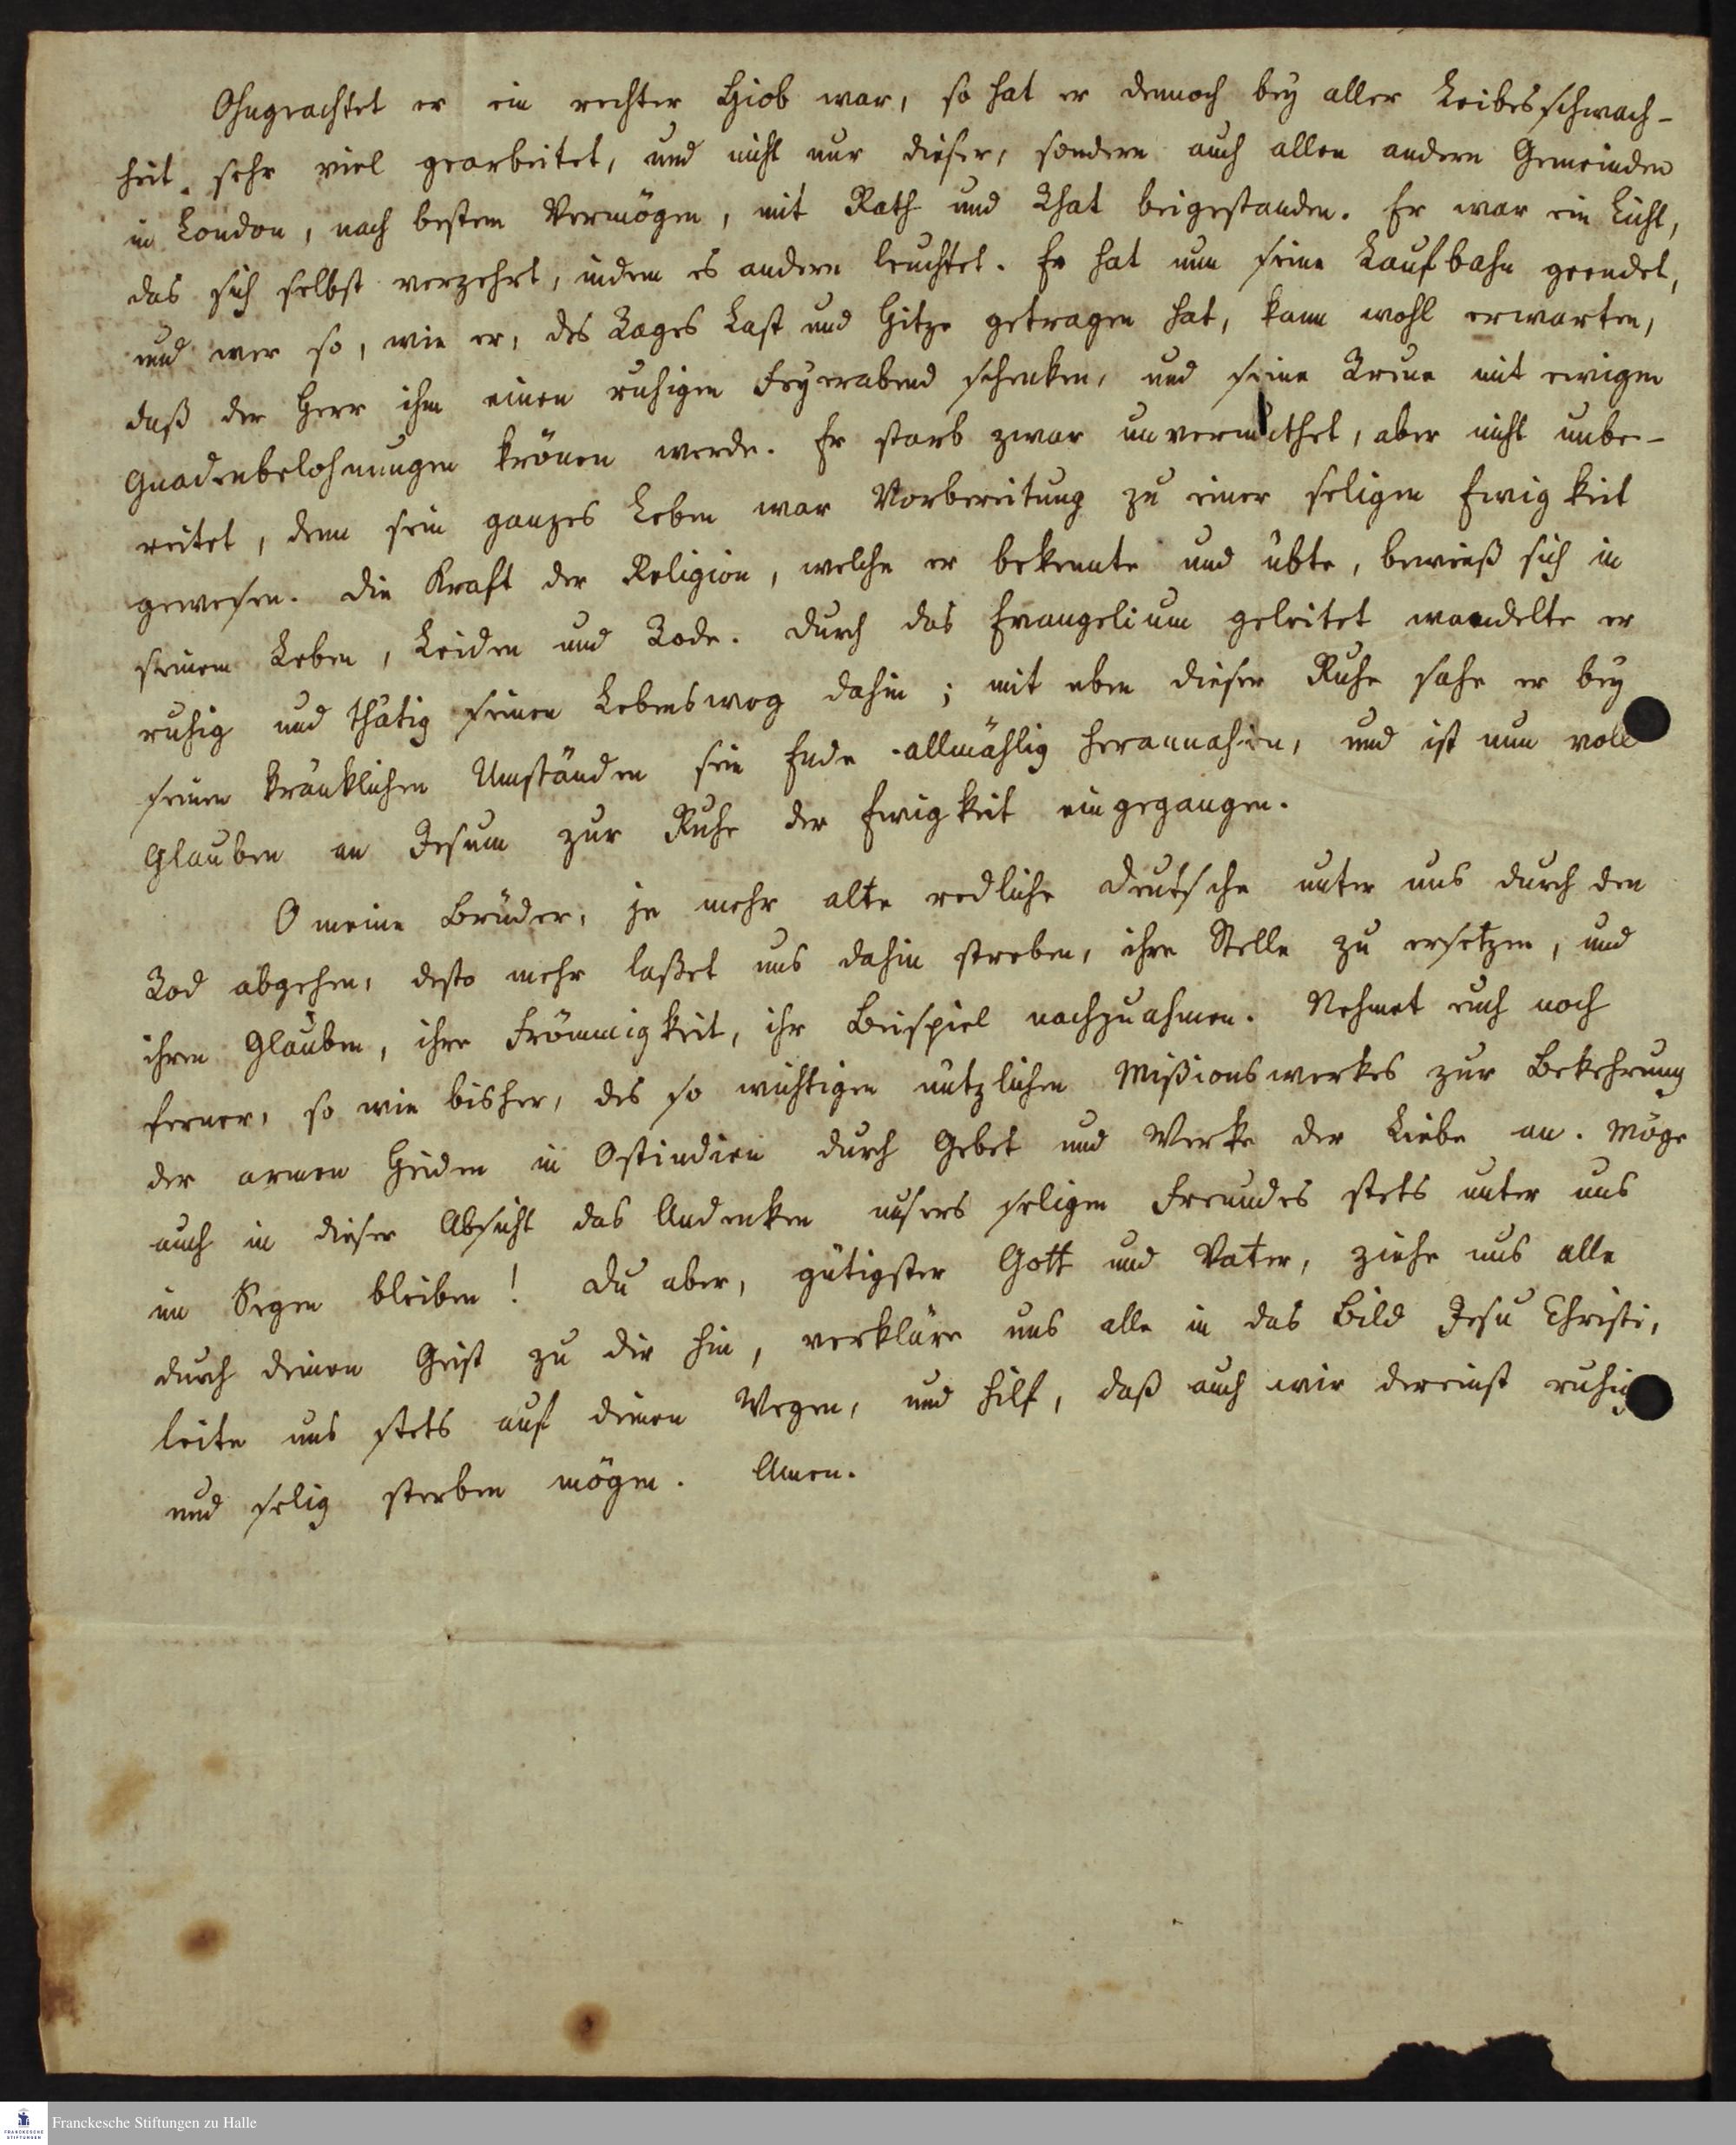 Ohngeachtet er ein rechter Hiob war, so hat er dennoch bey aller Leibesschwach-
heit sehr viel gearbeitet, und nicht nur dieser, sondern auch allen andern Gemeinden
in London, nach bestem Vermögen, mit Rath und That beigestanden. Er war ein Licht,
das sich selbst verzehrt, indem es andern leuchtet. Er hat nun seine Laufbahn geendet,
und wer so, wie er, des Tages Last und Hitze getragen hat, kann wohl erwarten,
daß der Herr ihm einen ruhigen Feyerabend schenken, und seine Treue mit ewigen
Gnadenbelohnungen krönen werde. Er starb zwar unvermuthet, aber nicht unbe-
reitet, denn sein ganzes Leben war Vorbereitung zu einer seligen Ewigkeit
gewesen. Die Kraft der Religion, welche er bekennte und übte, bewieß sich in
seinem Leben, Leiden und Tode. Durch das Evangelium geleitet wandelte er
ruhig und thätig seinen Lebensweg dahin; mit eben dieser Ruhe sahe er bey
seinen kränklichen Umständen sein Ende allmählig herannahen, und ist nun voll
Glauben an Jesum zur Ruhe der Ewigkeit eingegangen.
O meine Brüder, je mehr alte redliche Deutsche unter uns durch den
Tod abgehen, desto mehr laßet uns dahin streben, ihre Stelle zu ersetzen, und
ihren Glauben, ihre Frömmigkeit, ihr Beispiel nachzuahmen. Nehmet euch noch
ferner, so wie bisher, des so wichtigen nutzlichen Mißionswerkes zur Bekehrung
der armen Heiden in Ostindien durch Gebet und Werke der Liebe an. Möge
auch in dieser Absicht das Andenken unsers seligen Freundes stets unter uns
im Segen bleiben! Du aber, gütigster Gott und Vater, ziehe uns alle
durch deinen Geist zu dir hin, verkläre uns alle in das Bild Jesu Christi,
leite uns stets auf deinen Wegen, und hilf, daß auch wir dereinst ruhig
und selig sterben mögen. Amen.
Franckesche Stiftungen zu Halle
FRANCKESCHE
STIFTUNGEN